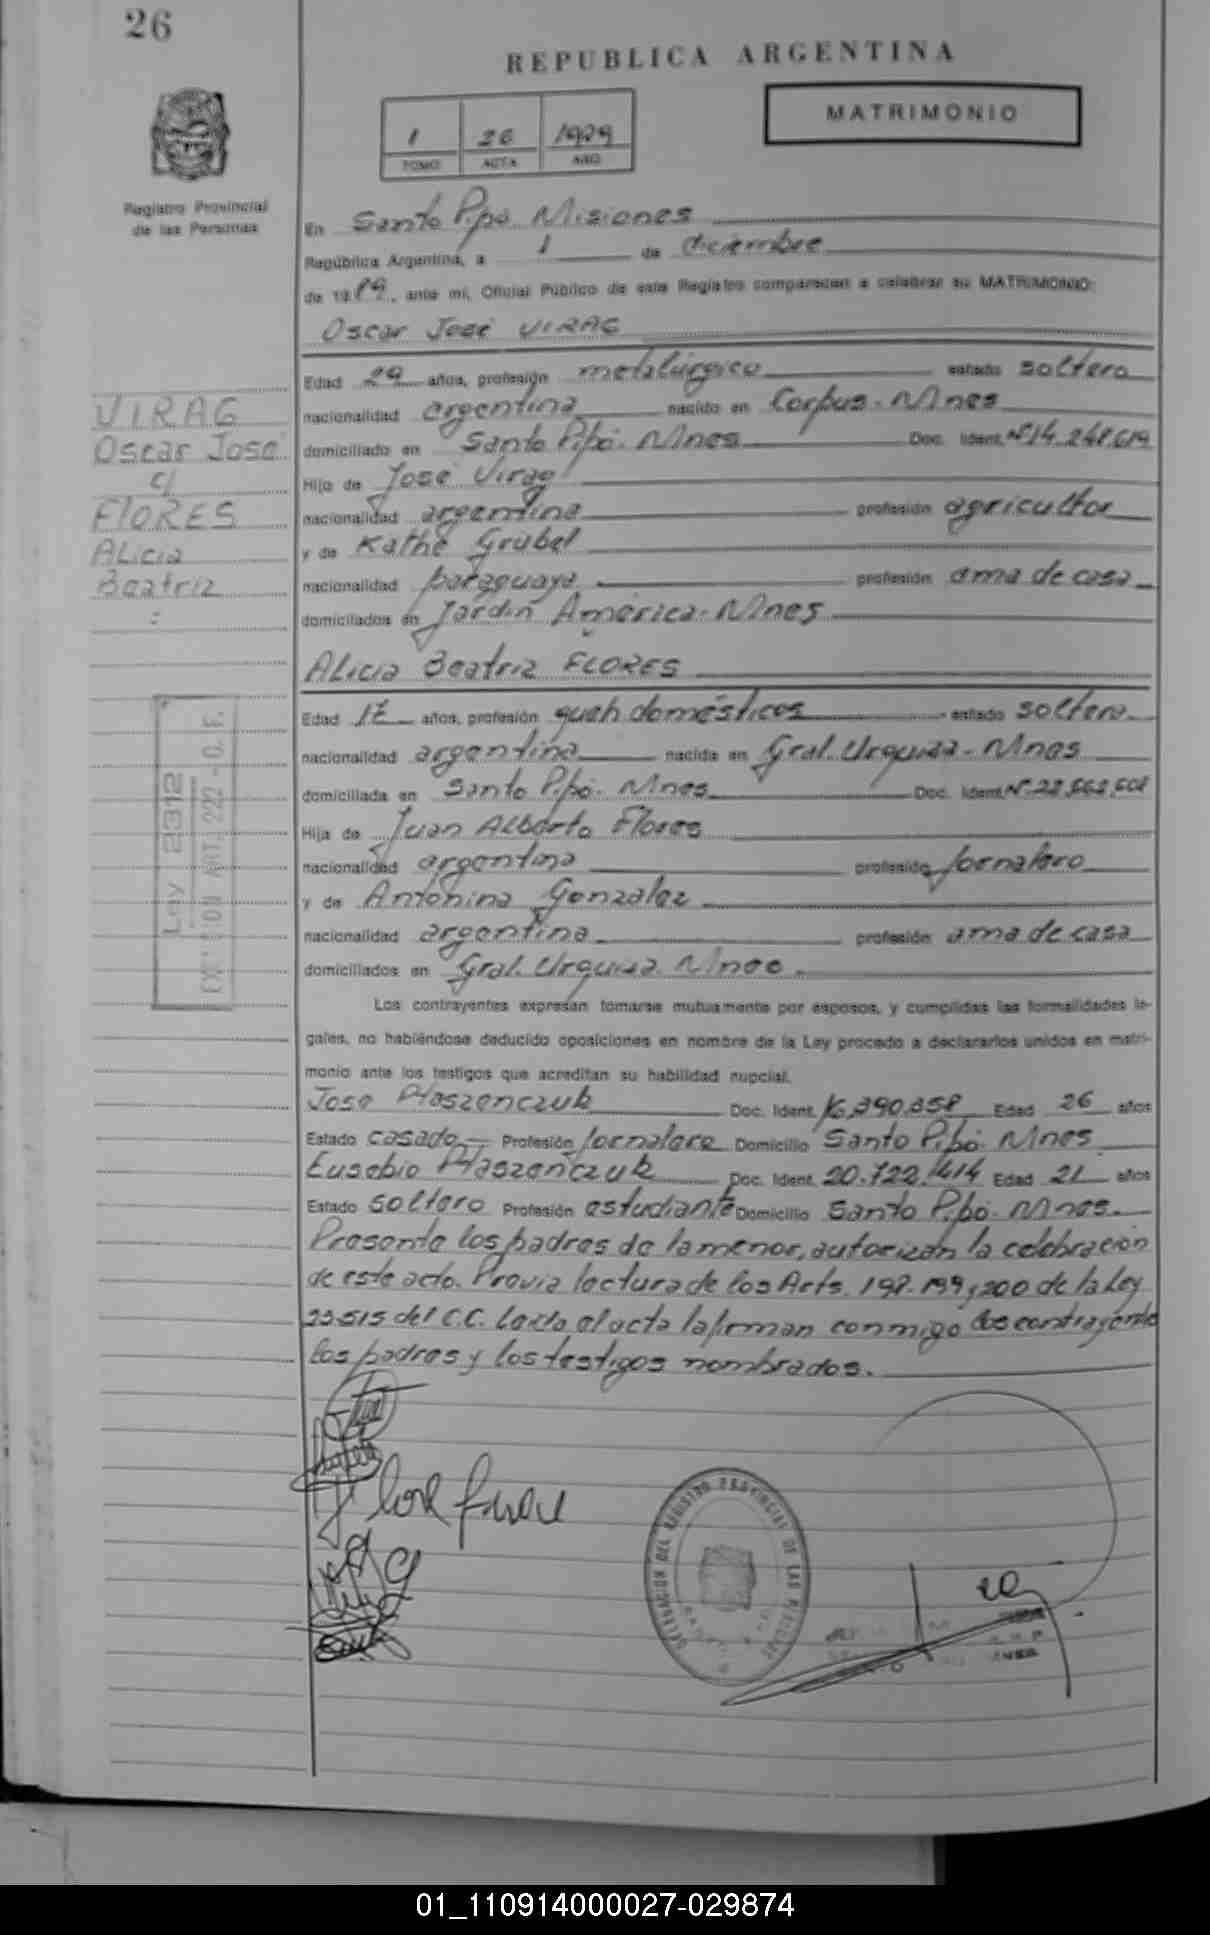 26
REPUBLICA ARGENTINA
MATRIMONIO
1 26
TOMO ACTA AÑO
Registro Provincial
de las Personas
En Santo Pipó Misiones
República Argentina, a 1 de diciembre
de 19 89, ante mi, Oficial Público de este Registro comparecen a celebrar su MATRIMONIO:
Oscar José VIRAG
Edad 29 años, profesión metalúrgico estado soltero
nacionalidad argentina nacido en Corpus - Mnes
domiciliado en Santo Pipó - Mnes Doc. Ident. Nº14.248.619
Hijo de José Virag
nacionalidad argentina profesión agricultor
y de Kathe Grubel
nacionalidad paraguaya profesión ama de casa
domicilados en Jardín América - Mnes
Alicia Beatriz FLORES
Edad 17 años, profesión queh domésticos estado soltera
nacionalidad argentina nacida en Gral. Urquiza - Mnes
domiciliada en Santo Pipó - Mnes Doc. Ident. Nº
Hija de Juan Alberto Flores
nacionalidad argentina profesión jornalero
y de Antonina Gonzalez
nacionalidad argentina profesión ama de casa
domiciliados en Gral. Urquiza Mnes
Los contrayentes expresan tomarse mutuamente por esposos, y cumplidas las formalidades le-
gales, no habiéndose deducido oposiciones en nombre de la Ley procedo a declararlos unidos en matri-
monio ante los testigos que acreditan su habilidad nupcial.
Jose Doc. Ident. 16.390.358 Edad 26 años
Estado casado Profesión jornalero Domicilio Santo Pipó - Mnes
Eusebio Doc. Ident. 20.722.414 Edad 21 años
Estado soltero Profesión estudiante Domicilio Santo Pipó - Mnes.
Presente los padres de la menor, autorizan la celebración
de este acto. Previa lectura de los Arts. 198-199 y 200 de la Ley
23.515 del C.C. Leida el acta la firman conmigo los contrayente
los padres y los testigos nombrados.
VIRAG
Oscar José
c/
FLORES
Alicia
Beatriz
Ley 2312
ART. 222 - O. F.
DELEGACION DEL REGISTRO PROVINCIAL DE LAS PERSONAS
01_110914000027-029874